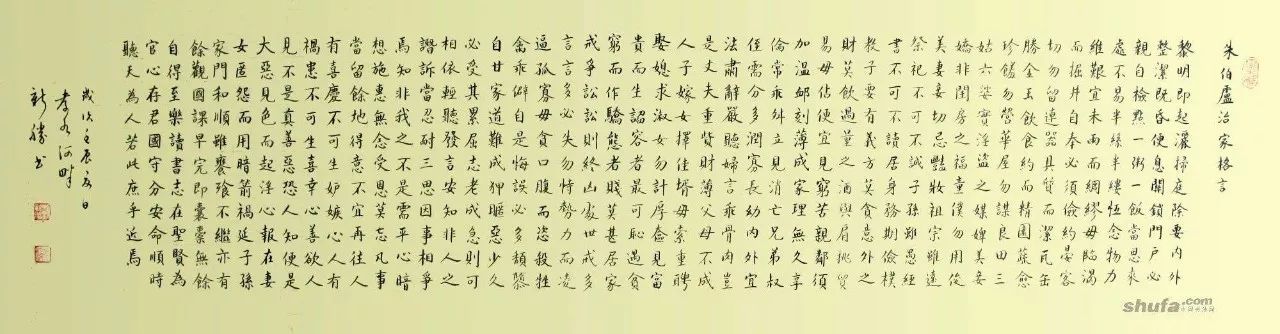 朱伯盧治家格言
黎明即起灑掃庭除要內外
整潔既昏便息關鎖門戶必
親自檢點一粥一飯當思來
處不易半絲半縷恆念物力
維艱宜未雨而綢繆毋臨渴
而掘井自奉必須儉約宴客
切勿留連器具質而潔瓦缶
勝金玉飲食約而精園蔬愈
珍饈勿營華屋勿謀良田三
姑六婆實淫盜之媒婢美妾
嬌非閨房之福童僕勿用俊
美妻妾切忌艷妝祖宗雖遠
祭祀不可不誠子孫雖愚經
書不可不讀居身務期儉樸
教子要有義方莫貪意外之
財莫飲過量之酒與肩挑貿
易毋佔便宜見窮苦親鄰須
加溫卹刻薄成家理無久享
倫常乖舛立見消亡兄弟叔
侄需分多潤寡長幼內外宜
法肅辭嚴聽婦言乖骨肉豈
是丈夫重貲財薄父母不成
人子嫁女擇佳婿毋索重聘
娶媳求淑女勿計厚奩見富
貴而生諂容者最可恥遇貧
窮而作驕態者賤莫甚居家
戒爭訟訟則終凶處世戒多
言言多必失勿恃勢力而凌
逼孤寡毋貪口腹而恣殺牲
禽乖僻自是悔誤必多頹隳
自甘家道難成狎暱惡少久
必受其累屈志老成急則可
相依輕聽發言安知非人之
譖訴當忍耐三思因事相爭
焉知非我之不是需平心暗
想施惠無念受恩莫忘凡事
當留餘地得意不宜再往人
有喜慶不可生妒嫉心人有
禍患不可生喜幸心善欲人
見不是真善惡恐人知便是
大惡見色而起淫心報在妻
女匿怨而用暗箭禍延子孫
家門和順雖饔飧不繼亦有
餘觀國課早完即囊橐無餘
自得至樂讀書志在聖賢為
官心存君國守分安命順時
聽天為人若此庶乎近焉
歲次壬辰夏日
河畔
新勝書
shufa.com